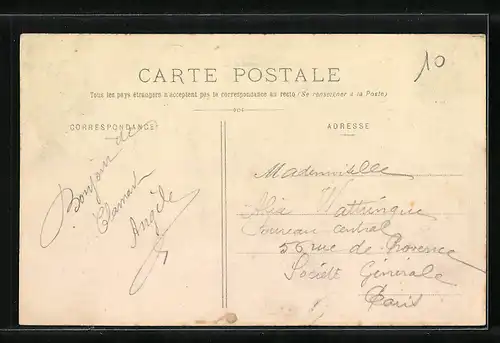 10
CARTE POSTALE
Tous les pays étrangers n'acceptent pas la correspondance au recto (Se renseigner à la Poste)
CORRESPONDANCE
ADRESSE
Bonjour de
Clamart
Angèle
Mademoiselle
Wattringue
Bureau Central
56 rue de Provence
Société Générale
Paris